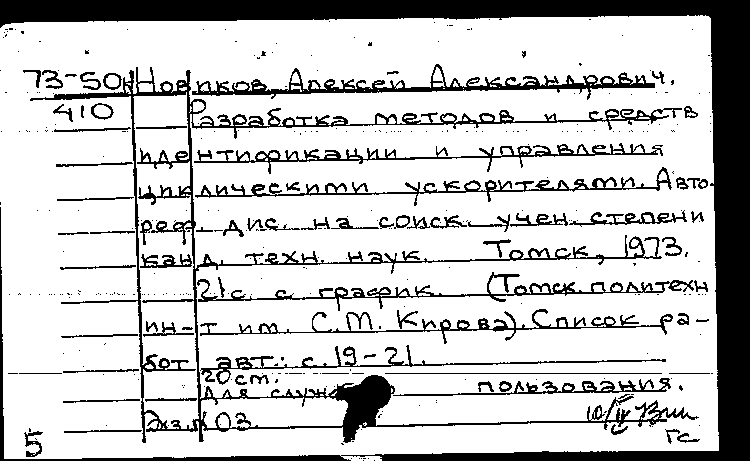 73-50н Новиков, Алексей Александрович.
410 Разработка методов и средств
идентификации и управления
циклическими ускорителями. Авто-
реф. дис. на соиск. учен. степени
канд. техн. наук. Томск, 1973.
21 с. с график. (Томск. политехн
ин-т им. С.М. Кирова). Список ра-
бот авт.: с. 19-21.
20 см.
Для служ пользования.
Экз. N 03.
5 Гс